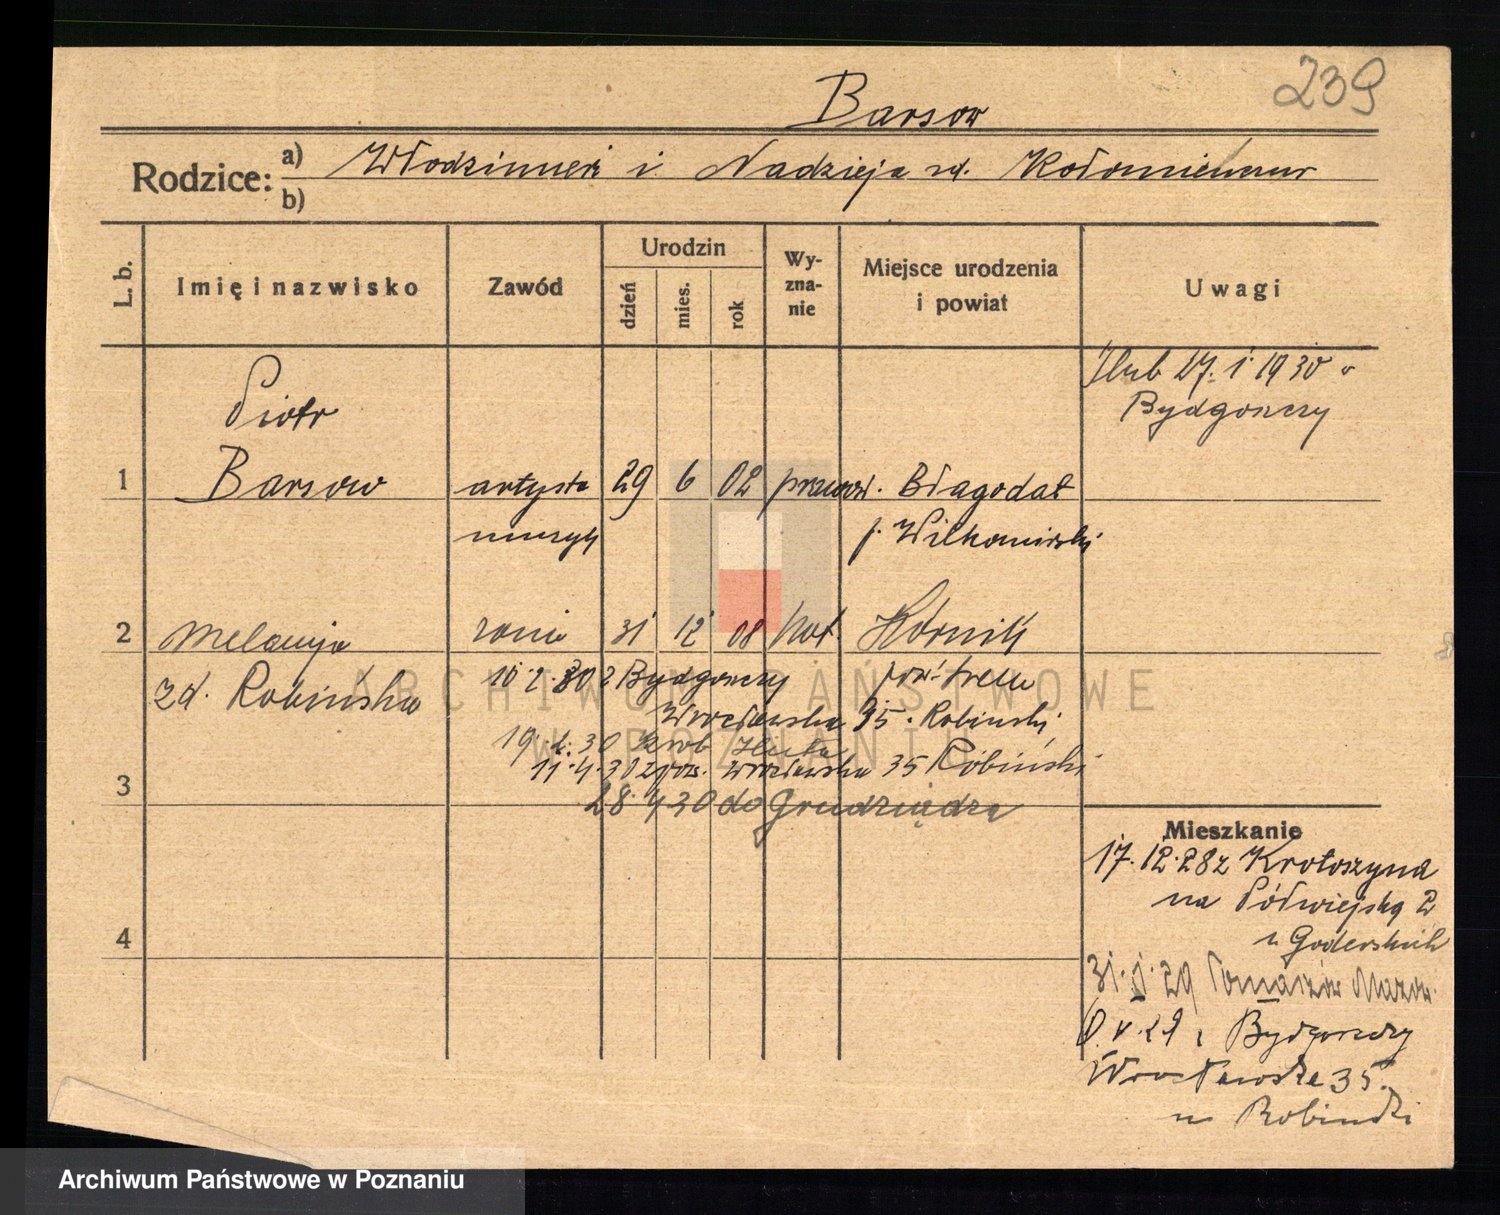 239
Barsow
Rodzice: a) Włodzimierz i Nadzieja zd.
b)
L. b.
Imię i nazwisko
Zawód
Urodzin
dzień
mies.
rok
Wy-
zna-
nie
Miejsce urodzenia
i powiat
Uwagi
Ślub 27. 1. 1930 w
Bydgoszczy
Piotr
1 Barsow artysta 29 6 02 prawosł. Błagodat
muzyk p. Wilkomirski
2 Melanja żona 31 12 08 kat. Kórnik
zd. Robińska 10.2.30 z Bydgoszczy pow. Śrem
Wrocławska 35. Robiński
19. 30 Huta
11.4.30 z pow. Wrocławska 35 Robiński
3
28. 4 30 do Grudziądza
4
Mieszkanie
17.12.28 z Krotoszyna
na Półwiejską 2
u Goderskich
31.1.29 Tomaszów Mazow.
V.29 z Bydgoszczy
Wrocławska 35.
u Robiński
ARCHIWUM PAŃSTWOWE
W POZNANIU
Archiwum Państwowe w Poznaniu